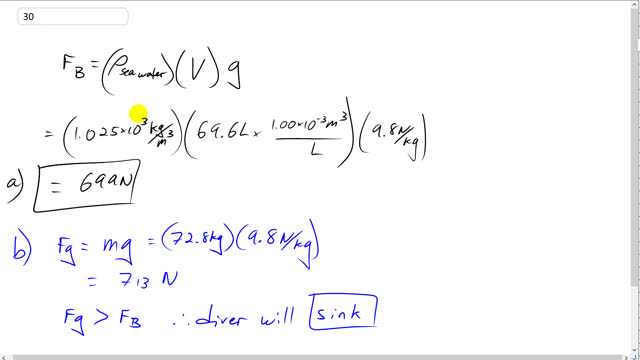 30
F_B = (ρ_sea water)(V) g
= (1.025×10³ kg/m³)(69.6L × 1.00×10⁻³m³/L)(9.8N/kg)
a) = 699N
b) Fg = mg = (72.8kg)(9.8N/kg)
= 713 N
Fg > F_B ∴ diver will sink